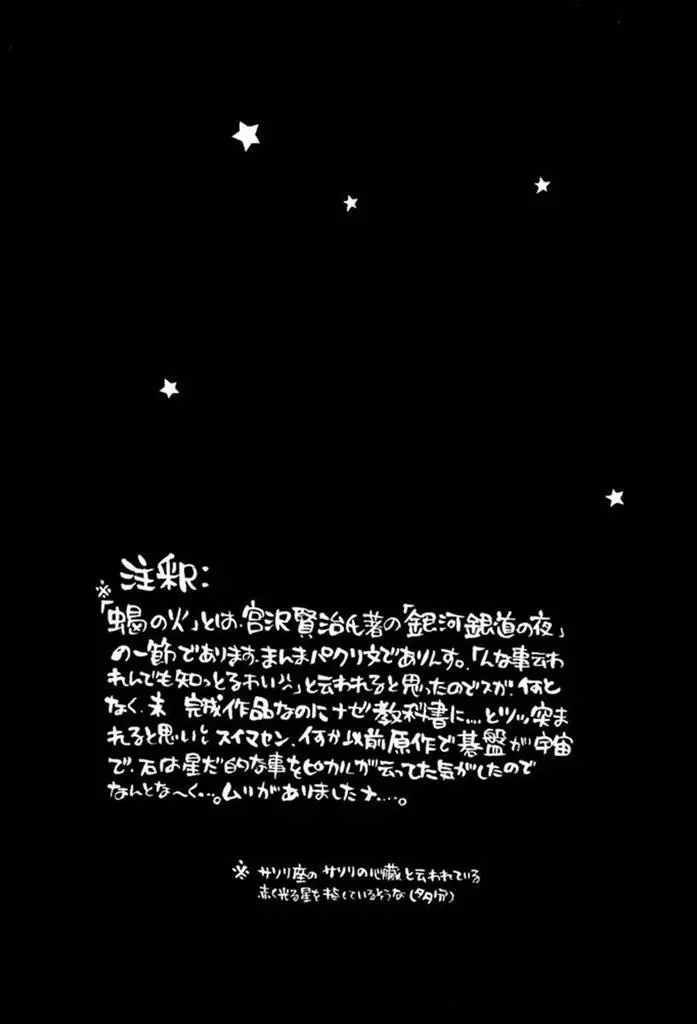 注釈:
※
「蝎の火」とは、宮沢賢治氏著の「銀河銀道の夜」
の一節であります。まんまパクリ文でありんす。「んな事云わ
れんでも知っとるわい!!」と云われると思ったのでスが、何と
なく、未 完成作品なのにナゼ教科書に…とツッ突ま
れると思いし スイマセン、何か以前原作で碁盤が宇宙
で、石は星だ的な事をヒカルが云ってた気がしたので
なんとな〜く…。ムリがありましたナ…。
※ サソリ座の サソリの心臓と云われている
赤く光る星を指しているそうな(タタ分)